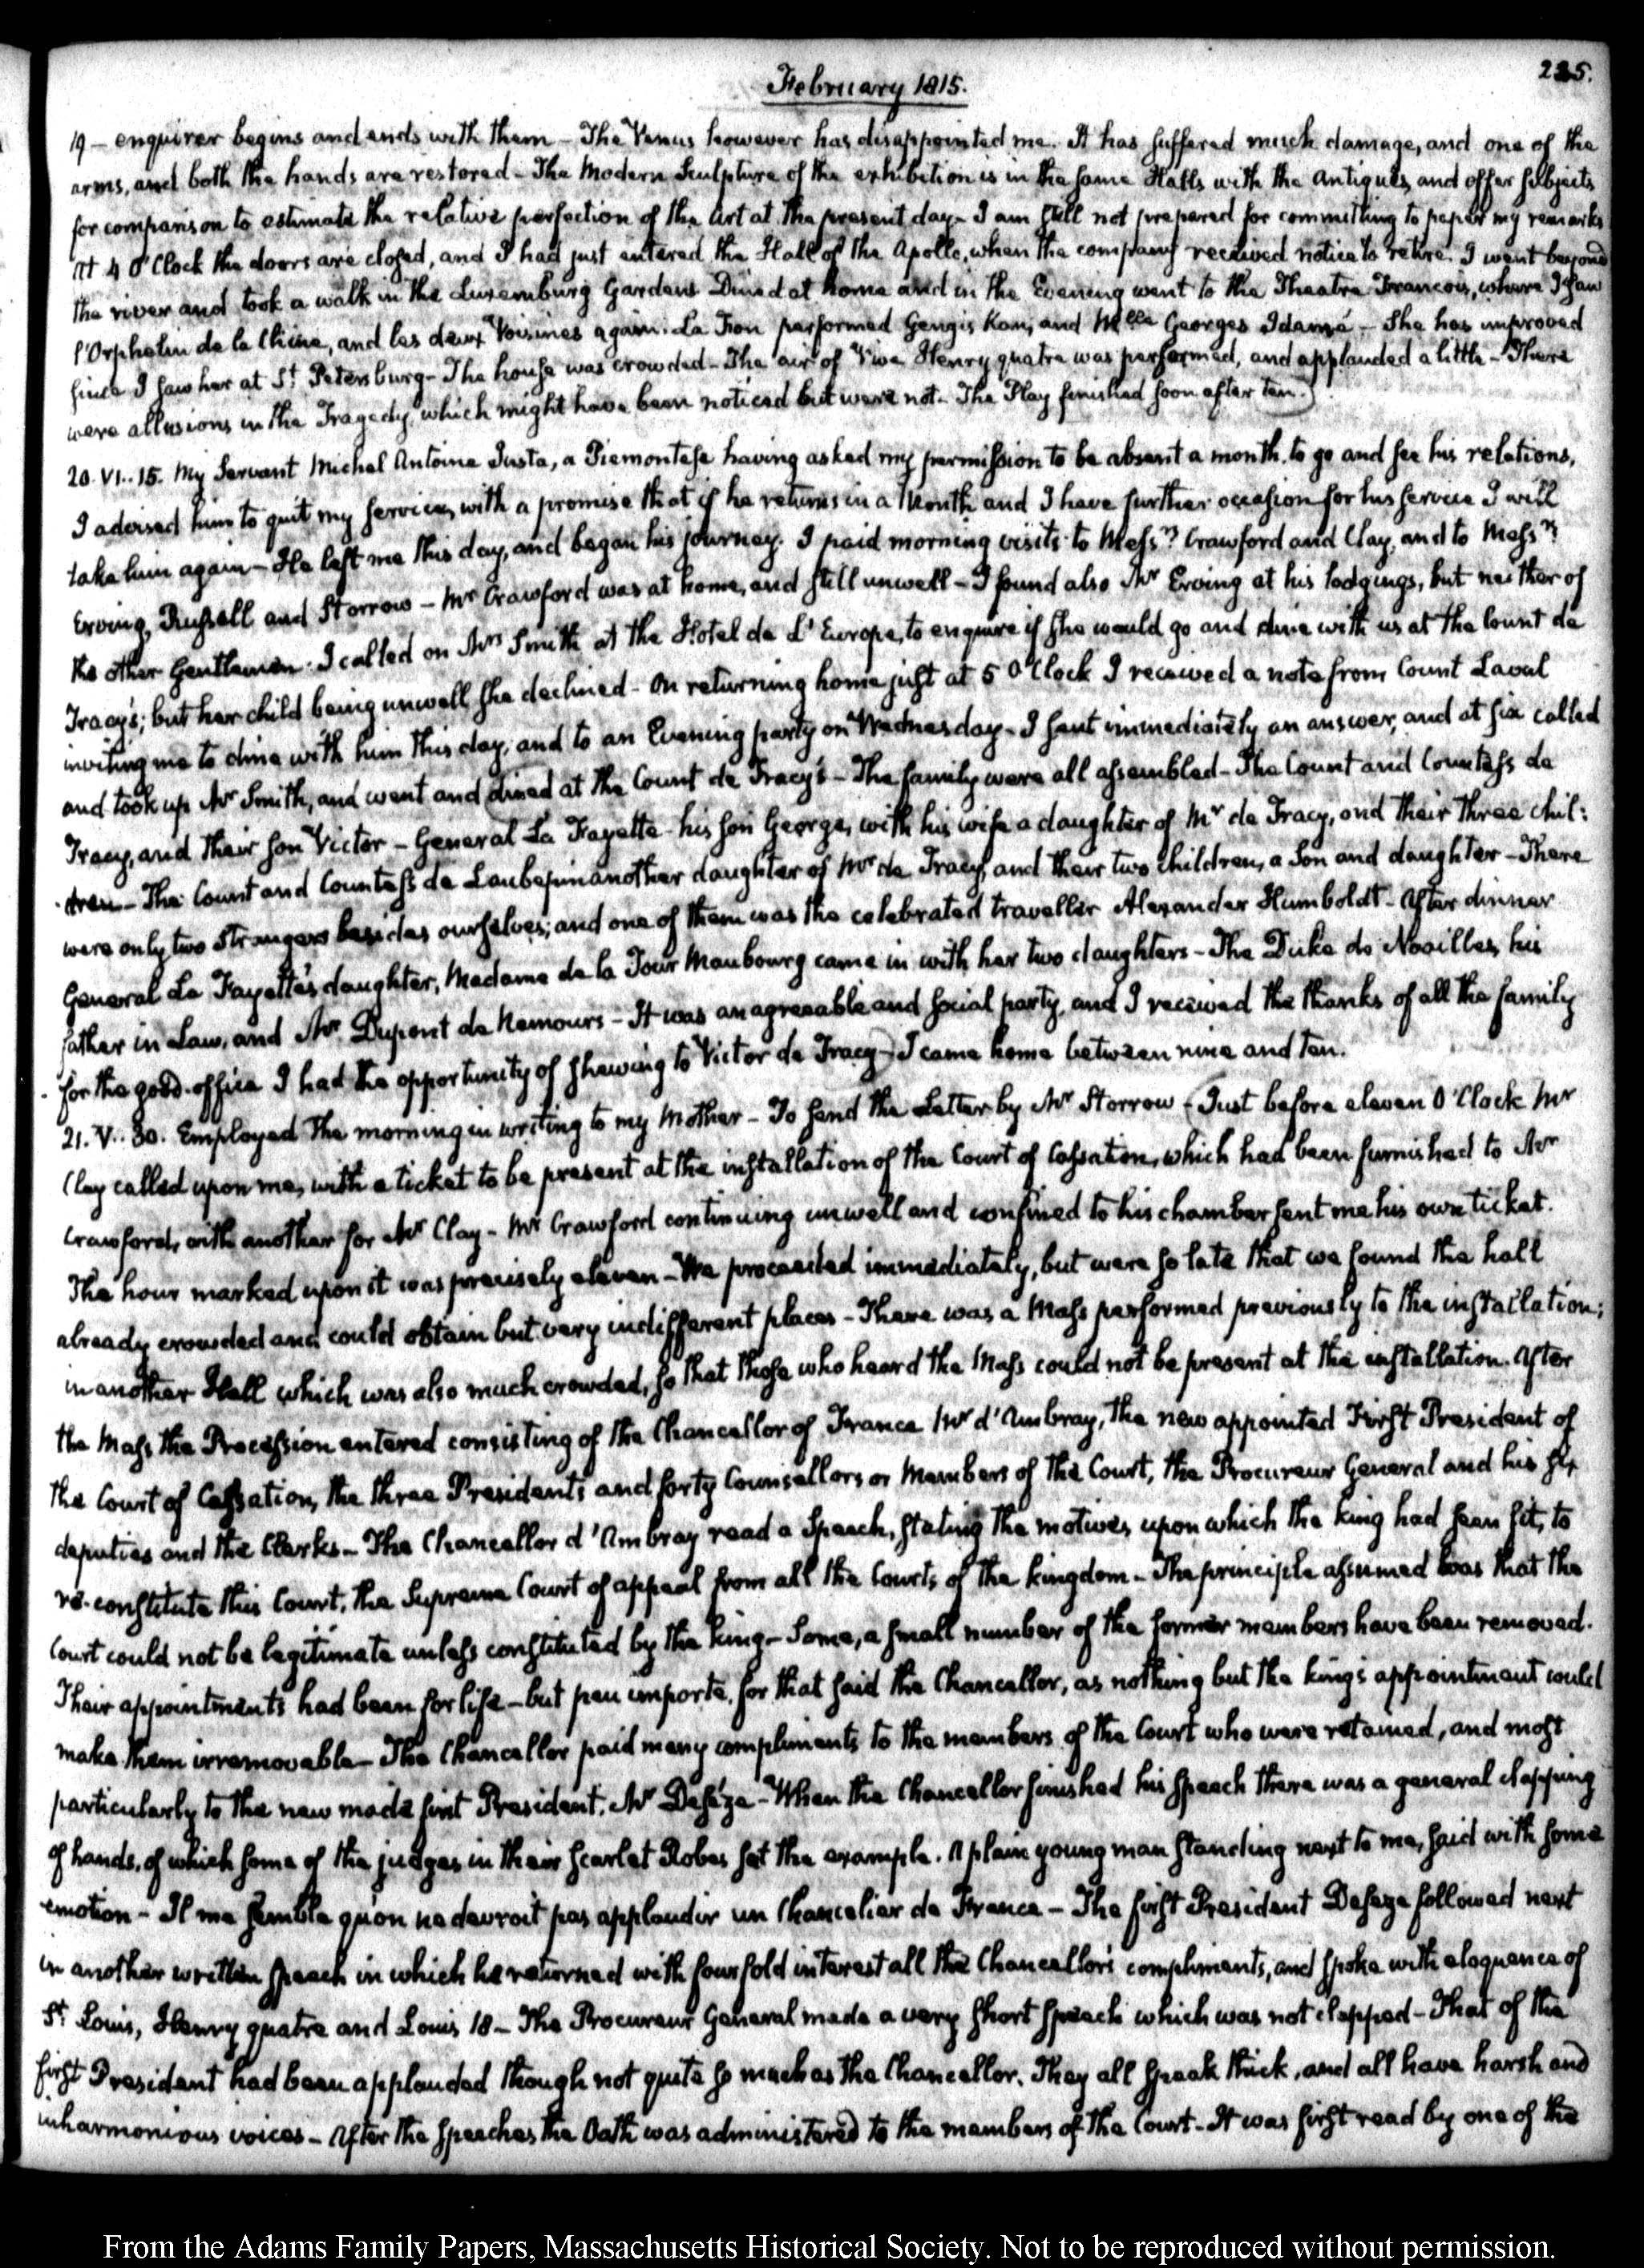 February 1815.
225.
19 – enquirer begins and ends with them – The Venus however has disappointed me. It has suffered much damage, and one of the
arms, and both the hands are restored – The Modern Sculpture of the exhibition is in the same Halls with the antiques, and offer subjects
for comparison to estimate the relative perfection of the Art at the present day – I am still not prepared for committing to paper my remarks
At 4 O'Clock the doors are closed, and I had just entered the Hall of the Apollo, when the company received notice to retire. I went beyond
the river and took a walk in the Luxemburg Gardens Dined at home and in the Evening went to the Theatre Francois, where I saw
l'Orphelin de la Chine, and les deux Voisines again. La Fon performed Gengis Kan, and Mlle Georges Idamé – She has improved
since I saw her at St Petersburg – The house was crowded – The air of Vive Henry quatre was performed, and applauded a little – There
were allusions in the Tragedy, which might have been noticed but were not – The Play finished soon after ten.)
20. VI.. 15. My Servant Michel Antoine Justa, a Piemontese having asked my permission to be absent a month, to go and see his relations,
I advised him to quit my service, with a promise that if he returns in a Month and I have further occasion for his service I will
take him again – He left me this day, and began his journey. I paid morning visits to Messrs Crawford and Clay, and to Messrs
Erving, Russell and Storrow – Mr Crawford was at home, and still unwell – I found also Mr Erving at his lodgings, but neither of
the other Gentlemen. I called on Mrs Smith at the Hotel de L'Europe, to enquire if she would go and dine with us at the Count de
Tracy's; but her child being unwell she declined – On returning home just at 5 O'Clock I received a note from Count Laval
inviting me to dine with him this day, and to an Evening party on Wednesday – I sent immediately an answer, and at six called
and took up Mr Smith, and went and dined at the Count de Tracy's – The family were all assembled – The Count and Countess de
Tracy, and their son Victor – General La Fayette his son George, with his wife a daughter of Mr de Tracy, and their three chil:
dren – The Count and Countess de Laubespin another daughter of Mr de Tracy, and their two children, a Son and daughter – There
were only two strangers besides ourselves; and one of them was the celebrated traveller Alexander Humboldt – After dinner
General La Fayette's daughter, Madame de la Tour Maubourg came in with her two daughters – The Duke de Noailles, his
father in Law, and Mr Dupont de Nemours – It was an agreeable and social party, and I received the thanks of all the family
for the good office I had the opportunity of shewing to Victor de Tracy –) I came home between nine and ten.
21. V.. 30. Employed the morning in writing to my Mother – To send the Letter by Mr Storrow – (Just before eleven O'Clock Mr
Clay called upon me, with a ticket to be present at the installation of the Court of Cassation, which had been furnished to Mr
Crawford, with another for Mr Clay – Mr Crawford continuing unwell and confined to his chamber sent me his own ticket.
The hour marked upon it was precisely eleven – We proceeded immediately, but were so late that we found the hall
already crowded and could obtain but very indifferent places – There was a Mass performed previously to the installation;
in another Hall which was also much crowded, so that those who heard the Mass could not be present at the installation. After
the Mass, the Procession entered consisting of the Chancellor of France Mr d'Ambray, the new appointed First President of
the Court of Cassation, the three Presidents and forty Counsellors or Members of the Court, the Procureur General and his six
deputies and the Clerks – The Chancellor d'Ambray read a Speech, stating the motives, upon which the king had seen fit, to
re-constitute this Court, the Supreme Court of appeal from all the Courts of the kingdom – The principle assumed was that the
Court could not be legitimate unless constituted by the king – Some, a small number of the former members have been removed.
Their appointments had been for life – but peu importe, for that said the Chancellor, as nothing but the king's appointment could
make them irremovable – The Chancellor paid many compliments to the members of the Court who were retained, and most
particularly to the new made first President, Mr Deséze – When the Chancellor finished his speech there was a general clapping
of hands, of which some of the judges in their scarlet Robes set the example. A plain young man standing next to me, said with some
emotion – Il me semble qu'on ne devroit pas applaudir un Chancelier de France – The first President Deseze followed next
in another written speech in which he returned with four fold interest all the Chancellor's compliments, and spoke with eloquence of
St Louis, Henry quatre and Louis 18 – The Procureur General made a very short speech which was not clapped – That of the
first President had been applauded though not quite so much as the Chancellor. They all speak thick, and all have harsh and
inharmonious voices – After the speeches, the Oath was administered to the members of the Court – It was first read by one of the
From the Adams Family Papers, Massachusetts Historical Society. Not to be reproduced without permission.